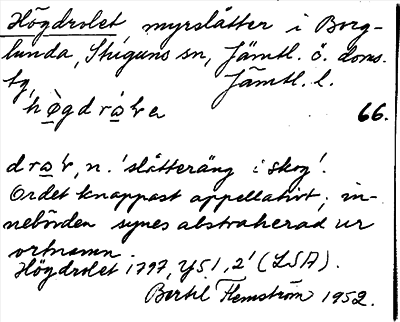 Högdrolet, myrslåtter i Borg-
lunda, Stuguns sn, Jämtl. ö. doms.
tg, Jämtl. l.
66.
n. 'slåtteräng i skog'.
Ordet knappast appellativt; in-
nebörden synes abstraherad ur
ortnamn.
Högdrolet 1797, Y51, 2' (LSA).
Bertil Flemström 1952.